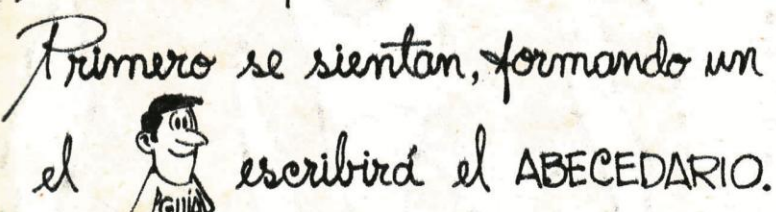 Primero se sientan, formando un
el GUIA escribirá el ABECEDARIO.